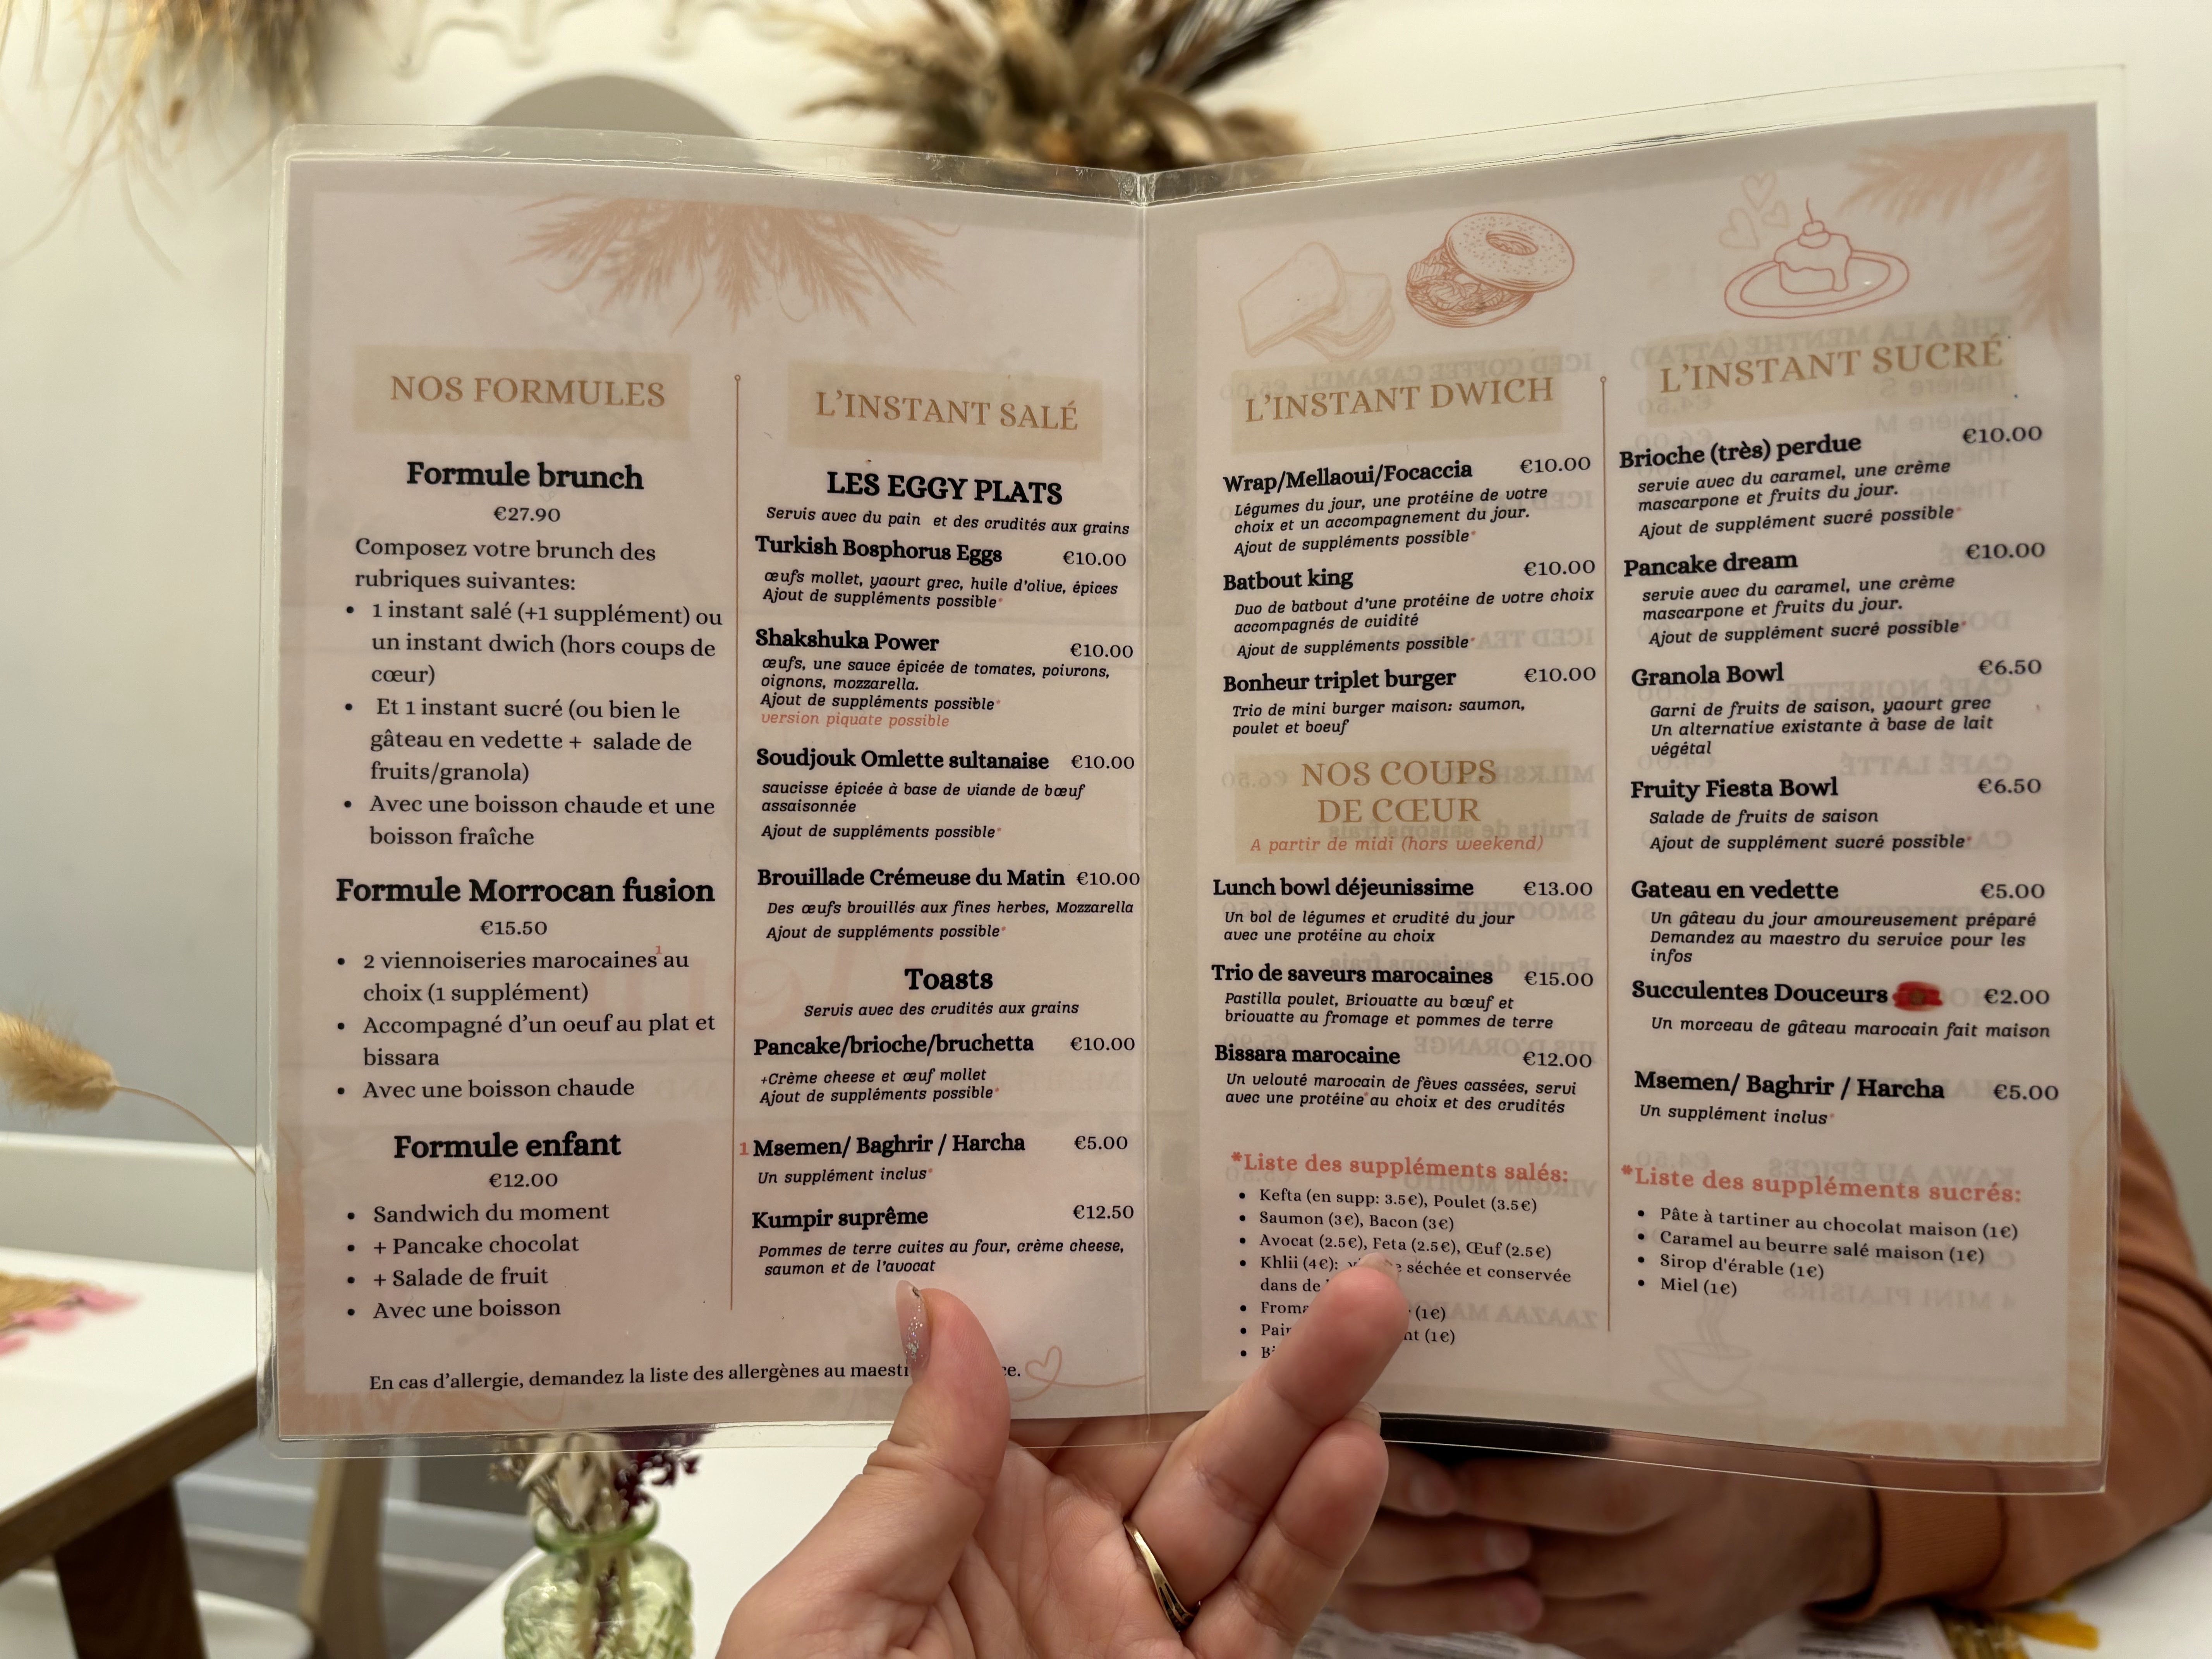 NOS FORMULES
Formule brunch
€27.90
Composez votre brunch des
rubriques suivantes:
• 1 instant salé (+1 supplément) ou
un instant dwich (hors coups de
cœur)
• Et 1 instant sucré (ou bien le
gâteau en vedette + salade de
fruits/granola)
• Avec une boisson chaude et une
boisson fraîche
Formule Morrocan fusion
€15.50
• 2 viennoiseries marocaines¹ au
choix (1 supplément)
• Accompagné d'un oeuf au plat et
bissara
• Avec une boisson chaude
Formule enfant
€12.00
• Sandwich du moment
• + Pancake chocolat
• + Salade de fruit
• Avec une boisson
En cas d'allergie, demandez la liste des allergènes au
L'INSTANT SALÉ
LES EGGY PLATS
Servis avec du pain et des crudités aux grains
Turkish Bosphorus Eggs €10.00
œufs mollet, yaourt grec, huile d'olive, épices
Ajout de suppléments possible*
Shakshuka Power €10.00
œufs, une sauce épicée de tomates, poivrons,
oignons, mozzarella.
Ajout de suppléments possible*
version piquate possible
Soudjouk Omlette sultanaise €10.00
saucisse épicée à base de viande de bœuf
assaisonnée
Ajout de suppléments possible*
Brouillade Crémeuse du Matin €10.00
Des œufs brouillés aux fines herbes, Mozzarella
Ajout de suppléments possible*
Toasts
Servis avec des crudités aux grains
Pancake/brioche/bruchetta €10.00
+Crème cheese et œuf mollet
Ajout de suppléments possible*
1 Msemen/ Baghrir / Harcha €5.00
Un supplément inclus*
Kumpir suprême €12.50
Pommes de terre cuites au four, crème cheese,
saumon et de l'avocat
L'INSTANT DWICH
Wrap/Mellaoui/Focaccia €10.00
Légumes du jour, une protéine de votre
choix et un accompagnement du jour.
Ajout de suppléments possible*
Batbout king €10.00
Duo de batbout d'une protéine de votre choix
accompagnés de cuidité
Ajout de suppléments possible*
Bonheur triplet burger €10.00
Trio de mini burger maison: saumon,
poulet et boeuf
NOS COUPS
DE CŒUR
A partir de midi (hors weekend)
Lunch bowl déjeunissime €13.00
Un bol de légumes et crudité du jour
avec une protéine au choix
Trio de saveurs marocaines €15.00
Pastilla poulet, Briouatte au bœuf et
briouatte au fromage et pommes de terre
Bissara marocaine €12.00
Un velouté marocain de fèves cassées, servi
avec une protéine* au choix et des crudités
*Liste des suppléments salés:
• Kefta (en supp: 3.5€), Poulet (3.5€)
• Saumon (3€), Bacon (3€)
• Avocat (2.5€), Feta (2.5€), Œuf (2.5€)
• Khlii (4€): séchée et conservée
dans de
• (1€)
• (1€)
L'INSTANT SUCRÉ
Brioche (très) perdue €10.00
servie avec du caramel, une crème
mascarpone et fruits du jour.
Ajout de supplément sucré possible*
Pancake dream €10.00
servie avec du caramel, une crème
mascarpone et fruits du jour.
Ajout de supplément sucré possible*
Granola Bowl €6.50
Garni de fruits de saison, yaourt grec
Un alternative existante à base de lait
végétal
Fruity Fiesta Bowl €6.50
Salade de fruits de saison
Ajout de supplément sucré possible*
Gateau en vedette €5.00
Un gâteau du jour amoureusement préparé
Demandez au maestro du service pour les
infos
Succulentes Douceurs €2.00
Un morceau de gâteau marocain fait maison
Msemen/ Baghrir / Harcha €5.00
Un supplément inclus*
*Liste des suppléments sucrés:
• Pâte à tartiner au chocolat maison (1€)
• Caramel au beurre salé maison (1€)
• Sirop d'érable (1€)
• Miel (1€)